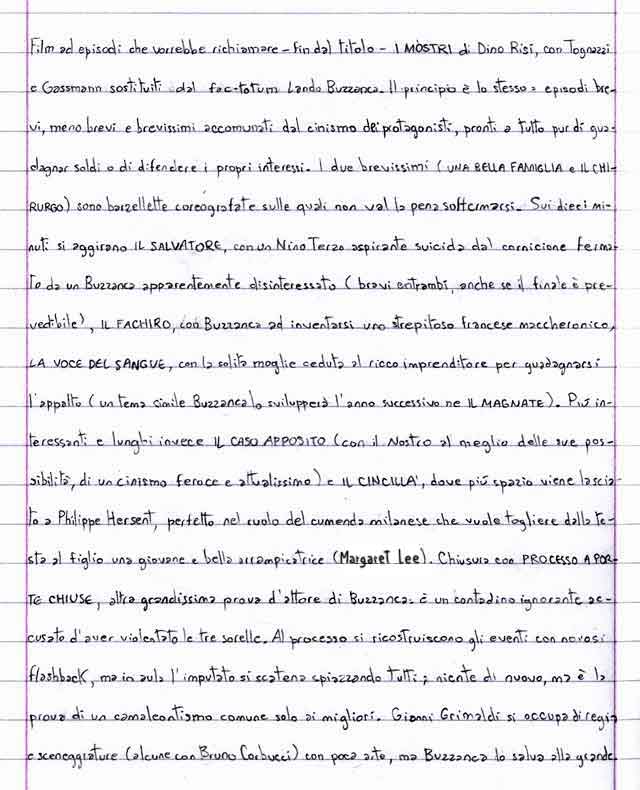 Film ad episodi che vorrebbe richiamare - fin dal titolo - I MOSTRI di Dino Risi, con Tognazzi
e Gassmann sostituiti dal fac-totum Lando Buzzanca. Il principio è lo stesso: episodi bre-
vi, meno brevi e brevissimi accomunati dal cinismo dei protagonisti, pronti a tutto pur di gua-
dagnar soldi o di difendere i propri interessi. I due brevissimi (UNA BELLA FAMIGLIA e IL CHI-
RURGO) sono barzellette coreografate sulle quali non val la pena soffermarsi. Sui dieci mi-
nuti si aggirano IL SALVATORE, con un Nino Terzo aspirante suicida dal cornicione ferma-
to da un Buzzanca apparentemente disinteressato (bravi entrambi, anche se il finale è pre-
vedibile), IL FACHIRO, con Buzzanca ad inventarsi uno strepitoso francese maccheronico,
LA VOCE DEL SANGUE, con la solita moglie ceduta al ricco imprenditore per guadagnarsi
l'appalto (un tema simile Buzzanca lo svilupperà l'anno successivo ne IL MAGNATE). Più in-
teressanti e lunghi invece IL CASO APPOSITO (con il Nostro al meglio delle sue pos-
sibilità, di un cinismo feroce e attualissimo) e IL CINCILLA', dove più spazio viene lascia-
to a Philippe Hersent, perfetto nel ruolo del cumenda milanese che vuole togliere dalla te-
sta al figlio una giovane e bella arrampicatrice (Margaret Lee). Chiusura con PROCESSO A POR-
TE CHIUSE, altra grandissima prova d'attore di Buzzanca: è un contadino ignorante ac-
cusato d'aver violentato le tre sorelle. Al processo si ricostruiscono gli eventi con noiosi
flashback, ma in aula l'imputato si scatena spiazzando tutti; niente di nuovo, ma è la
prova di un camaleontismo comune solo ai migliori. Gianni Grimaldi si occupa di regia
e sceneggiature (alcune con Bruno Corbucci) con poca arte, ma Buzzanca lo salva alla grande.